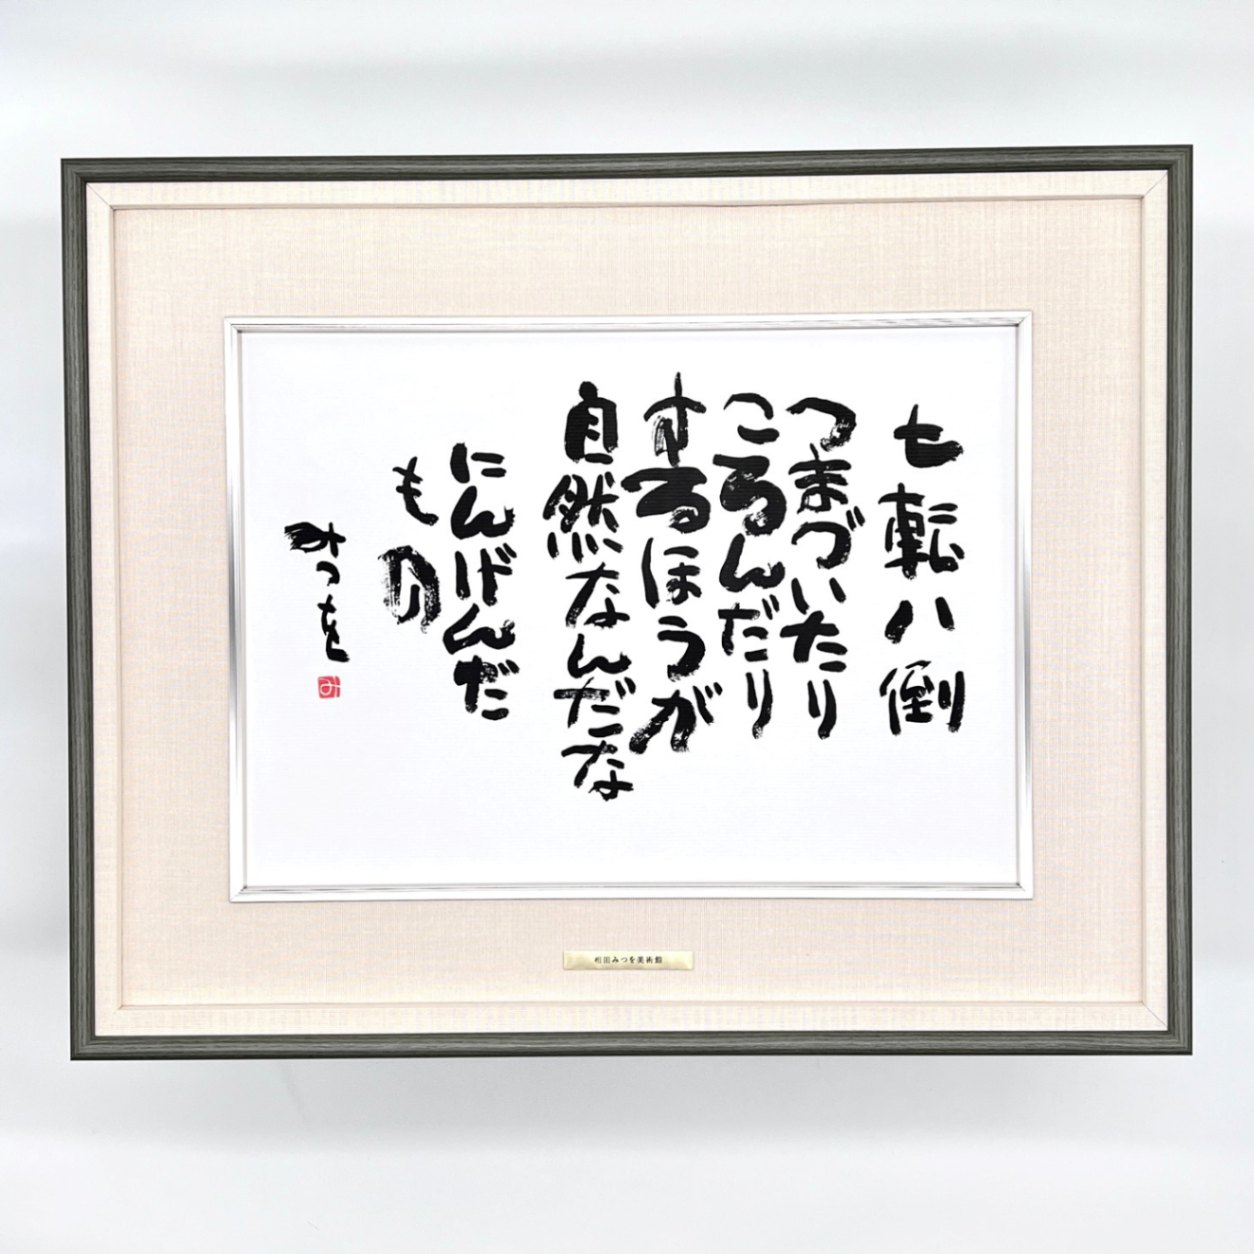 七転八倒
つまづいたり
ころんだり
するほうが
自然なんだな
にんげんだ
もの
みつを
み
相田みつを美術館